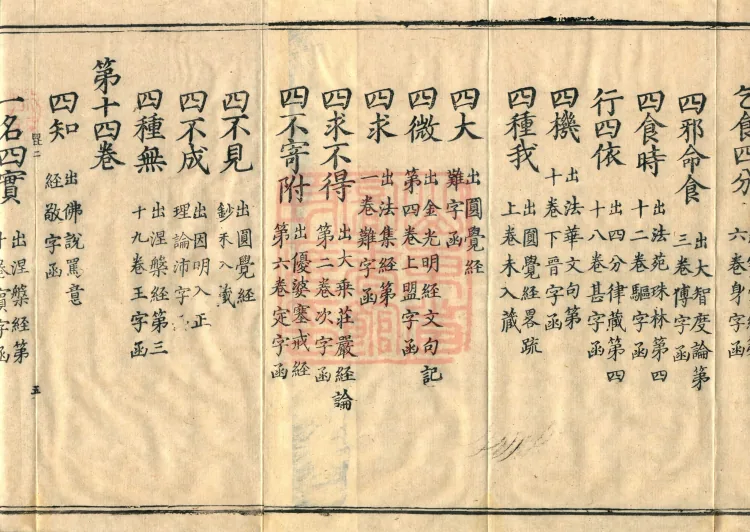 乞食四分
六卷身字函
四邪命食
出大智度論第
三卷傅字函
四食時
出法苑珠林第四
十二卷驅字函
行四依
出四分律藏第四
十八卷甚字函
四機
出法華文句第
十卷下晉字函
四種我
出圓覺經畧疏
上卷未入藏
四大
出圓覺經
難字函
四微
出金光明經文句記
第四卷上盟字函
四求
出法集經第
一卷難字函
四求不得
出大乘莊嚴經論
第二卷次字函
四不寄附
出優婆塞戒經
第六卷定字函
四不見
出圓覺經
鈔未入藏
四不成
出因明入正
理論沛字
四種無
出涅槃經第三
十九卷王字函
第十四卷
四知
出佛說罵意
經敬字函
五
一名四實
出涅槃經第
十卷賓字函